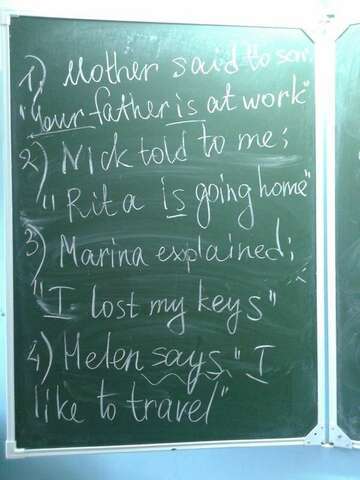 1) Mother said to son:
"Your father is at work"
2) Nick told to me:
"Rita is going home"
3) Marina explained:
"I lost my keys"
4) Helen says "I
like to travel"